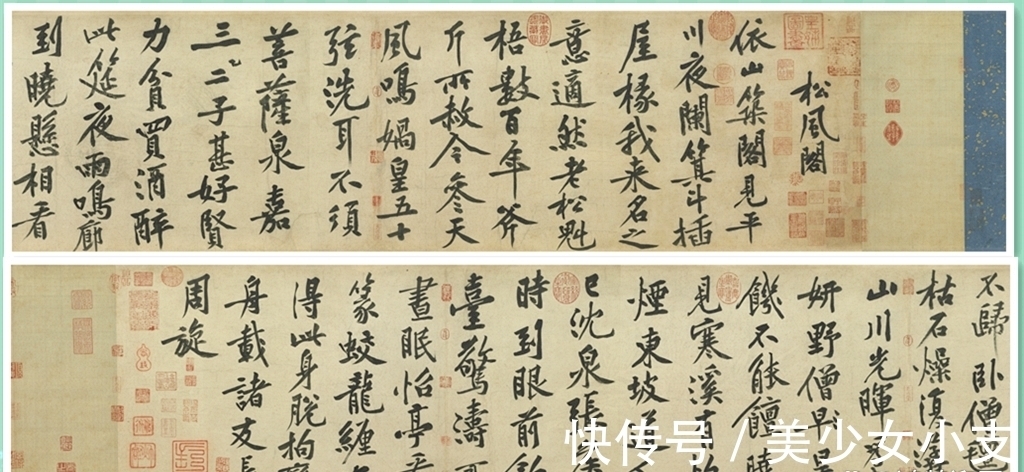 松風閣
依山築閣見平
川夜闌箕斗插
屋椽我来名之
意適然老松魁
梧數百年斧
斤所赦今參天
風鳴媧皇五十
弦洗耳不須
菩薩泉嘉
三二子甚好賢
力貧買酒醉
此筵夜雨鳴廊
到曉懸相看
不歸卧僧
枯石燥復
山川光暉
妍野僧旱
饑不能饘曉
見寒溪
煙東坡道
已沈泉張
時到眼前
臺驚濤
晝眠怡亭
篆蛟龍纏
得此身脫拘
舟載諸友
周旋
快传号 / 美少女小支